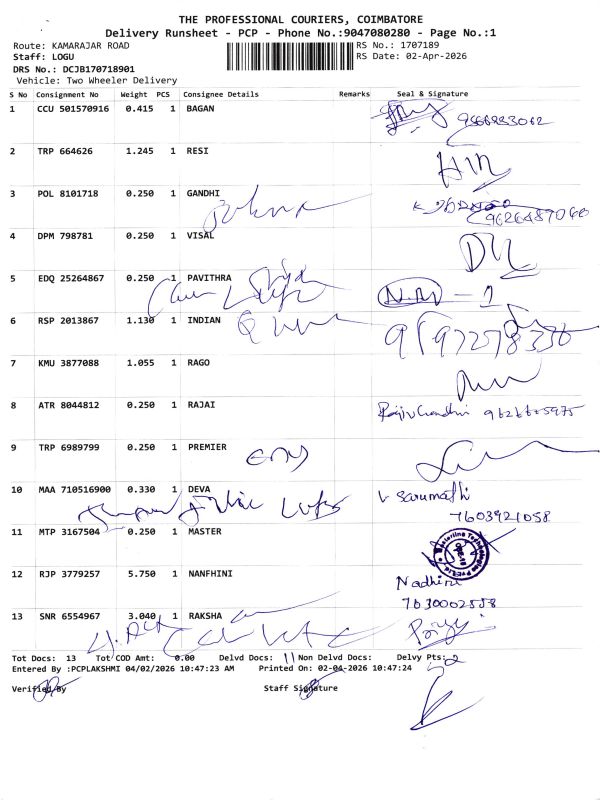 THE PROFESSIONAL COURIERS, COIMBATORE
Delivery Runsheet - PCP - Phone No.:9047080280 - Page No.:1
Route: KAMARAJAR ROAD RS No.: 1707189
Staff: LOGU RS Date: 02-Apr-2026
DRS No.: DCJB170718901
Vehicle: Two Wheeler Delivery
S No Consignment No Weight PCS Consignee Details Remarks Seal & Signature
1 CCU 501570916 0.415 1 BAGAN
2 TRP 664626 1.245 1 RESI
3 POL 8101718 0.250 1 GANDHI
9626487060
4 DPM 798781 0.250 1 VISAL
5 EDQ 25264867 0.250 1 PAVITHRA
6 RSP 2013867 1.130 1 INDIAN
7 KMU 3877088 1.055 1 RAGO
8 ATR 8044812 0.250 1 RAJAI
9 TRP 6989799 0.250 1 PREMIER
10 MAA 710516900 0.330 1 DEVA V Sarumathi
7603921058
11 MTP 3167504 0.250 1 MASTER
12 RJP 3779257 5.750 1 NANFHINI Nadhini
7030002558
13 SNR 6554967 3.040 1 RAKSHA
Tot Docs: 13 Tot COD Amt: 0.00 Delvd Docs: 11 Non Delvd Docs: Delvy Pts: 2
Entered By :PCPLAKSHMI 04/02/2026 10:47:23 AM Printed On: 02-04-2026 10:47:24
Verified By Staff Signature